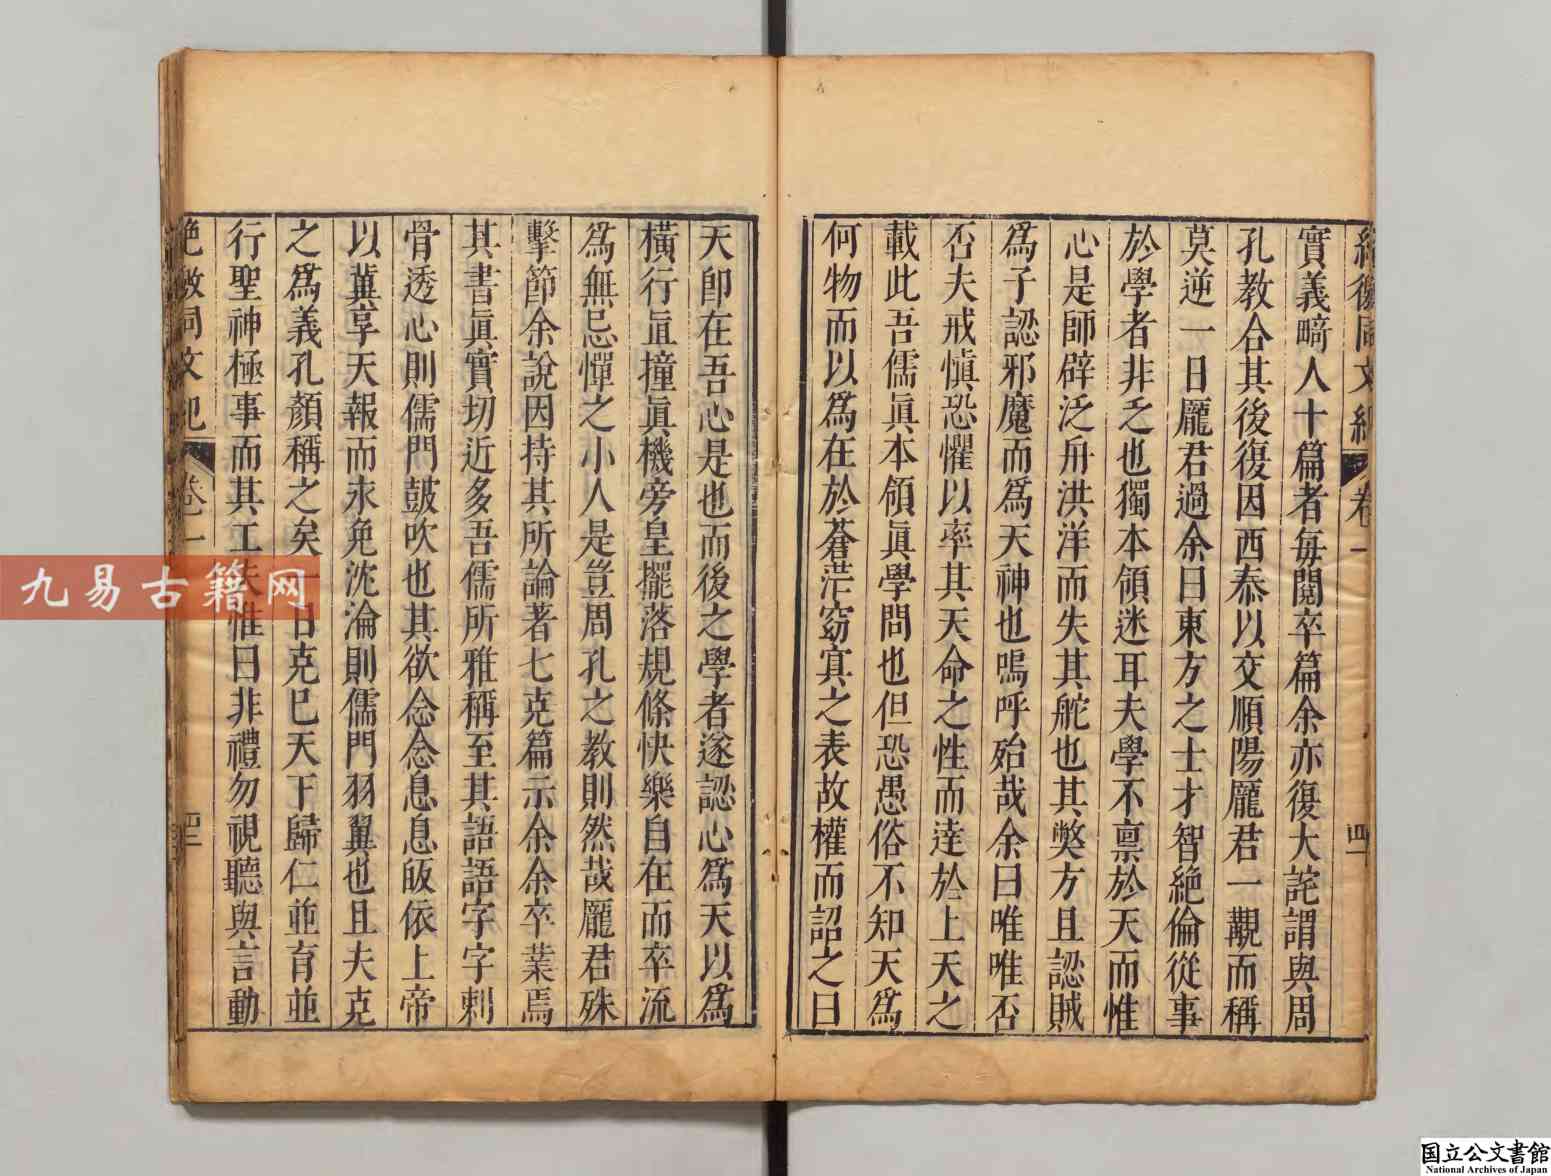 絕徼同文紀 卷一 四一
實義畸人十篇者每閱卒篇余亦復大詫謂與周
孔教合其後復因西泰以交順陽龐君一覯而稱
莫逆一日龐君過余曰東方之士才智絕倫從事
於學者非乏也獨本領迷耳夫學不禀於天而惟
心是師辟泛舟洪洋而失其舵也其獘方且認賊
為子認邪魔而為天神也嗚呼殆哉余曰唯唯否
否夫戒慎恐懼以率其天命之性而達於上天之
載此吾儒眞本領眞學問也但恐愚俗不知天為
何物而以為在於蒼茫窈㝠之表故權而詔之曰
天卽在吾心是也而後之學者遂認心為天以為
橫行直撞眞機旁皇擺落規條快樂自在而卒流
為無忌憚之小人是豈周孔之教則然哉龐君殊
擊節余說因持其所論著七克篇示余余卒業焉
其書眞實切近多吾儒所雅稱至其語語字字刺
骨透心則儒門鼓吹也其欲念念息息皈依上帝
以冀享天報而永免沈淪則儒門羽翼也且夫克
之為義孔顏稱之矣一日克巳天下歸仁並育並
行聖神極事而其工夫惟曰非禮勿視聽與言動
絕徼同文紀 卷一 四二
九易古籍网
国立公文書館
National Archives of Japan